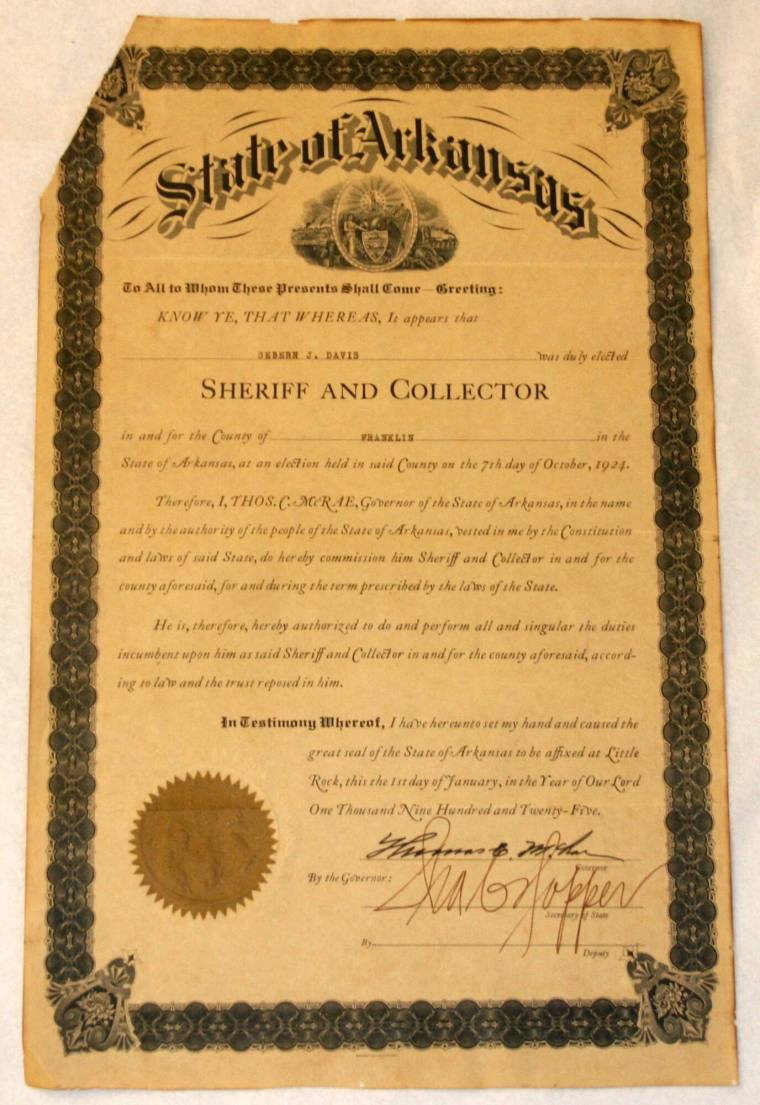 State of Arkansas
To All to Whom These Presents Shall Come—Greeting:
KNOW YE, THAT WHEREAS, It appears that
SEBERN J. DAVIS was duly elected
SHERIFF AND COLLECTOR
in and for the County of FRANKLIN in the
State of Arkansas, at an election held in said County on the 7th day of October, 1924.
Therefore, I, THOS. C. McRAE, Governor of the State of Arkansas, in the name
and by the authority of the people of the State of Arkansas, vested in me by the Constitution
and laws of said State, do hereby commission him Sheriff and Collector in and for the
county aforesaid, for and during the term prescribed by the laws of the State.
He is, therefore, hereby authorized to do and perform all and singular the duties
incumbent upon him as said Sheriff and Collector in and for the county aforesaid, accord-
ing to law and the trust reposed in him.
In Testimony Whereof, I have hereunto set my hand and caused the
great seal of the State of Arkansas to be affixed at Little
Rock, this the 1st day of January, in the Year of Our Lord
One Thousand Nine Hundred and Twenty-Five.
Thomas C. McRae
Governor
By the Governor:
Ira C. Hopper
Secretary of State
By
Deputy